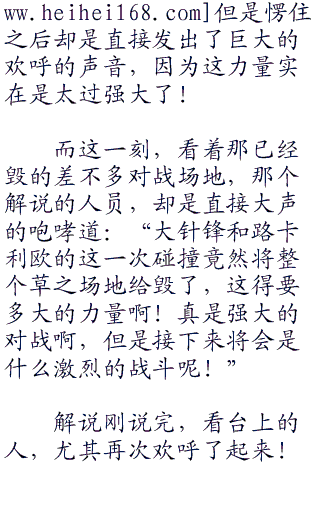 ww.heihei168.com]但是愣住
之后却是直接发出了巨大的
欢呼的声音，因为这力量实
在是太过强大了！
而这一刻，看着那已经
毁的差不多对战场地，那个
解说的人员，却是直接大声
的咆哮道：“大针锋和路卡
利欧的这一次碰撞竟然将整
个草之场地给毁了，这得要
多大的力量啊！真是强大的
对战啊，但是接下来将会是
什么激烈的战斗呢！”
解说刚说完，看台上的
人，尤其再次欢呼了起来！